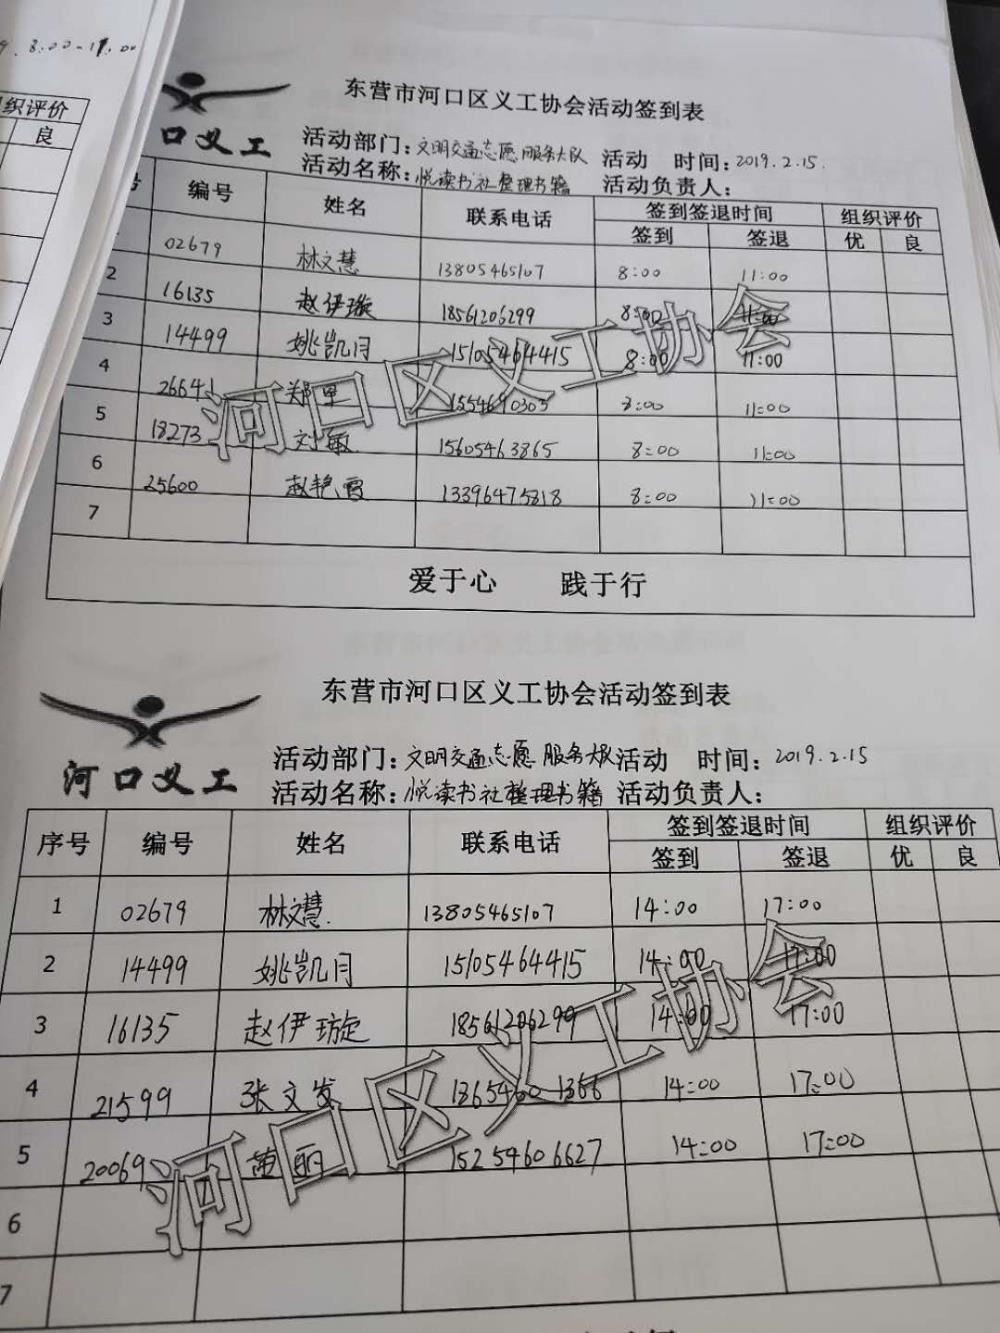 8:00-11:00
组织评价
良
东营市河口区义工协会活动签到表
口义工
活动部门：文明交通志愿服务大队 活动 时间：2019.2.15.
活动名称：悦读书社整理书籍 活动负责人：
号 编号 姓名 联系电话 签到签退时间 组织评价
签到 签退 优 良
02679 林文慧 13805465107 8:00 11:00
2 16135 赵伊璇 18561206299 8:00 11:00
3 14499 姚凯月 15105464415 8:00 11:00
4 26641 郑 8:00 11:00
5 18273 刘敏 15605463865 8:00 11:00
6 25600 赵艳霞 13396475818 8:00 11:00
7
河口区义工协会
爱于心 践于行
东营市河口区义工协会活动签到表
河口义工
活动部门：文明交通志愿服务大队 活动 时间：2019.2.15
活动名称：悦读书社整理书籍 活动负责人：
序号 编号 姓名 联系电话 签到签退时间 组织评价
签到 签退 优 良
1 02679 林文慧. 13805465107 14:00 17:00
2 14499 姚凯月 15105464415 14:00 17:00
3 16135 赵伊璇 18561206299 14:00 17:00
4 21599 张文发 13654601366 14:00 17:00
5 20069 丽 15254606627 14:00 17:00
6
7
河口区义工协会